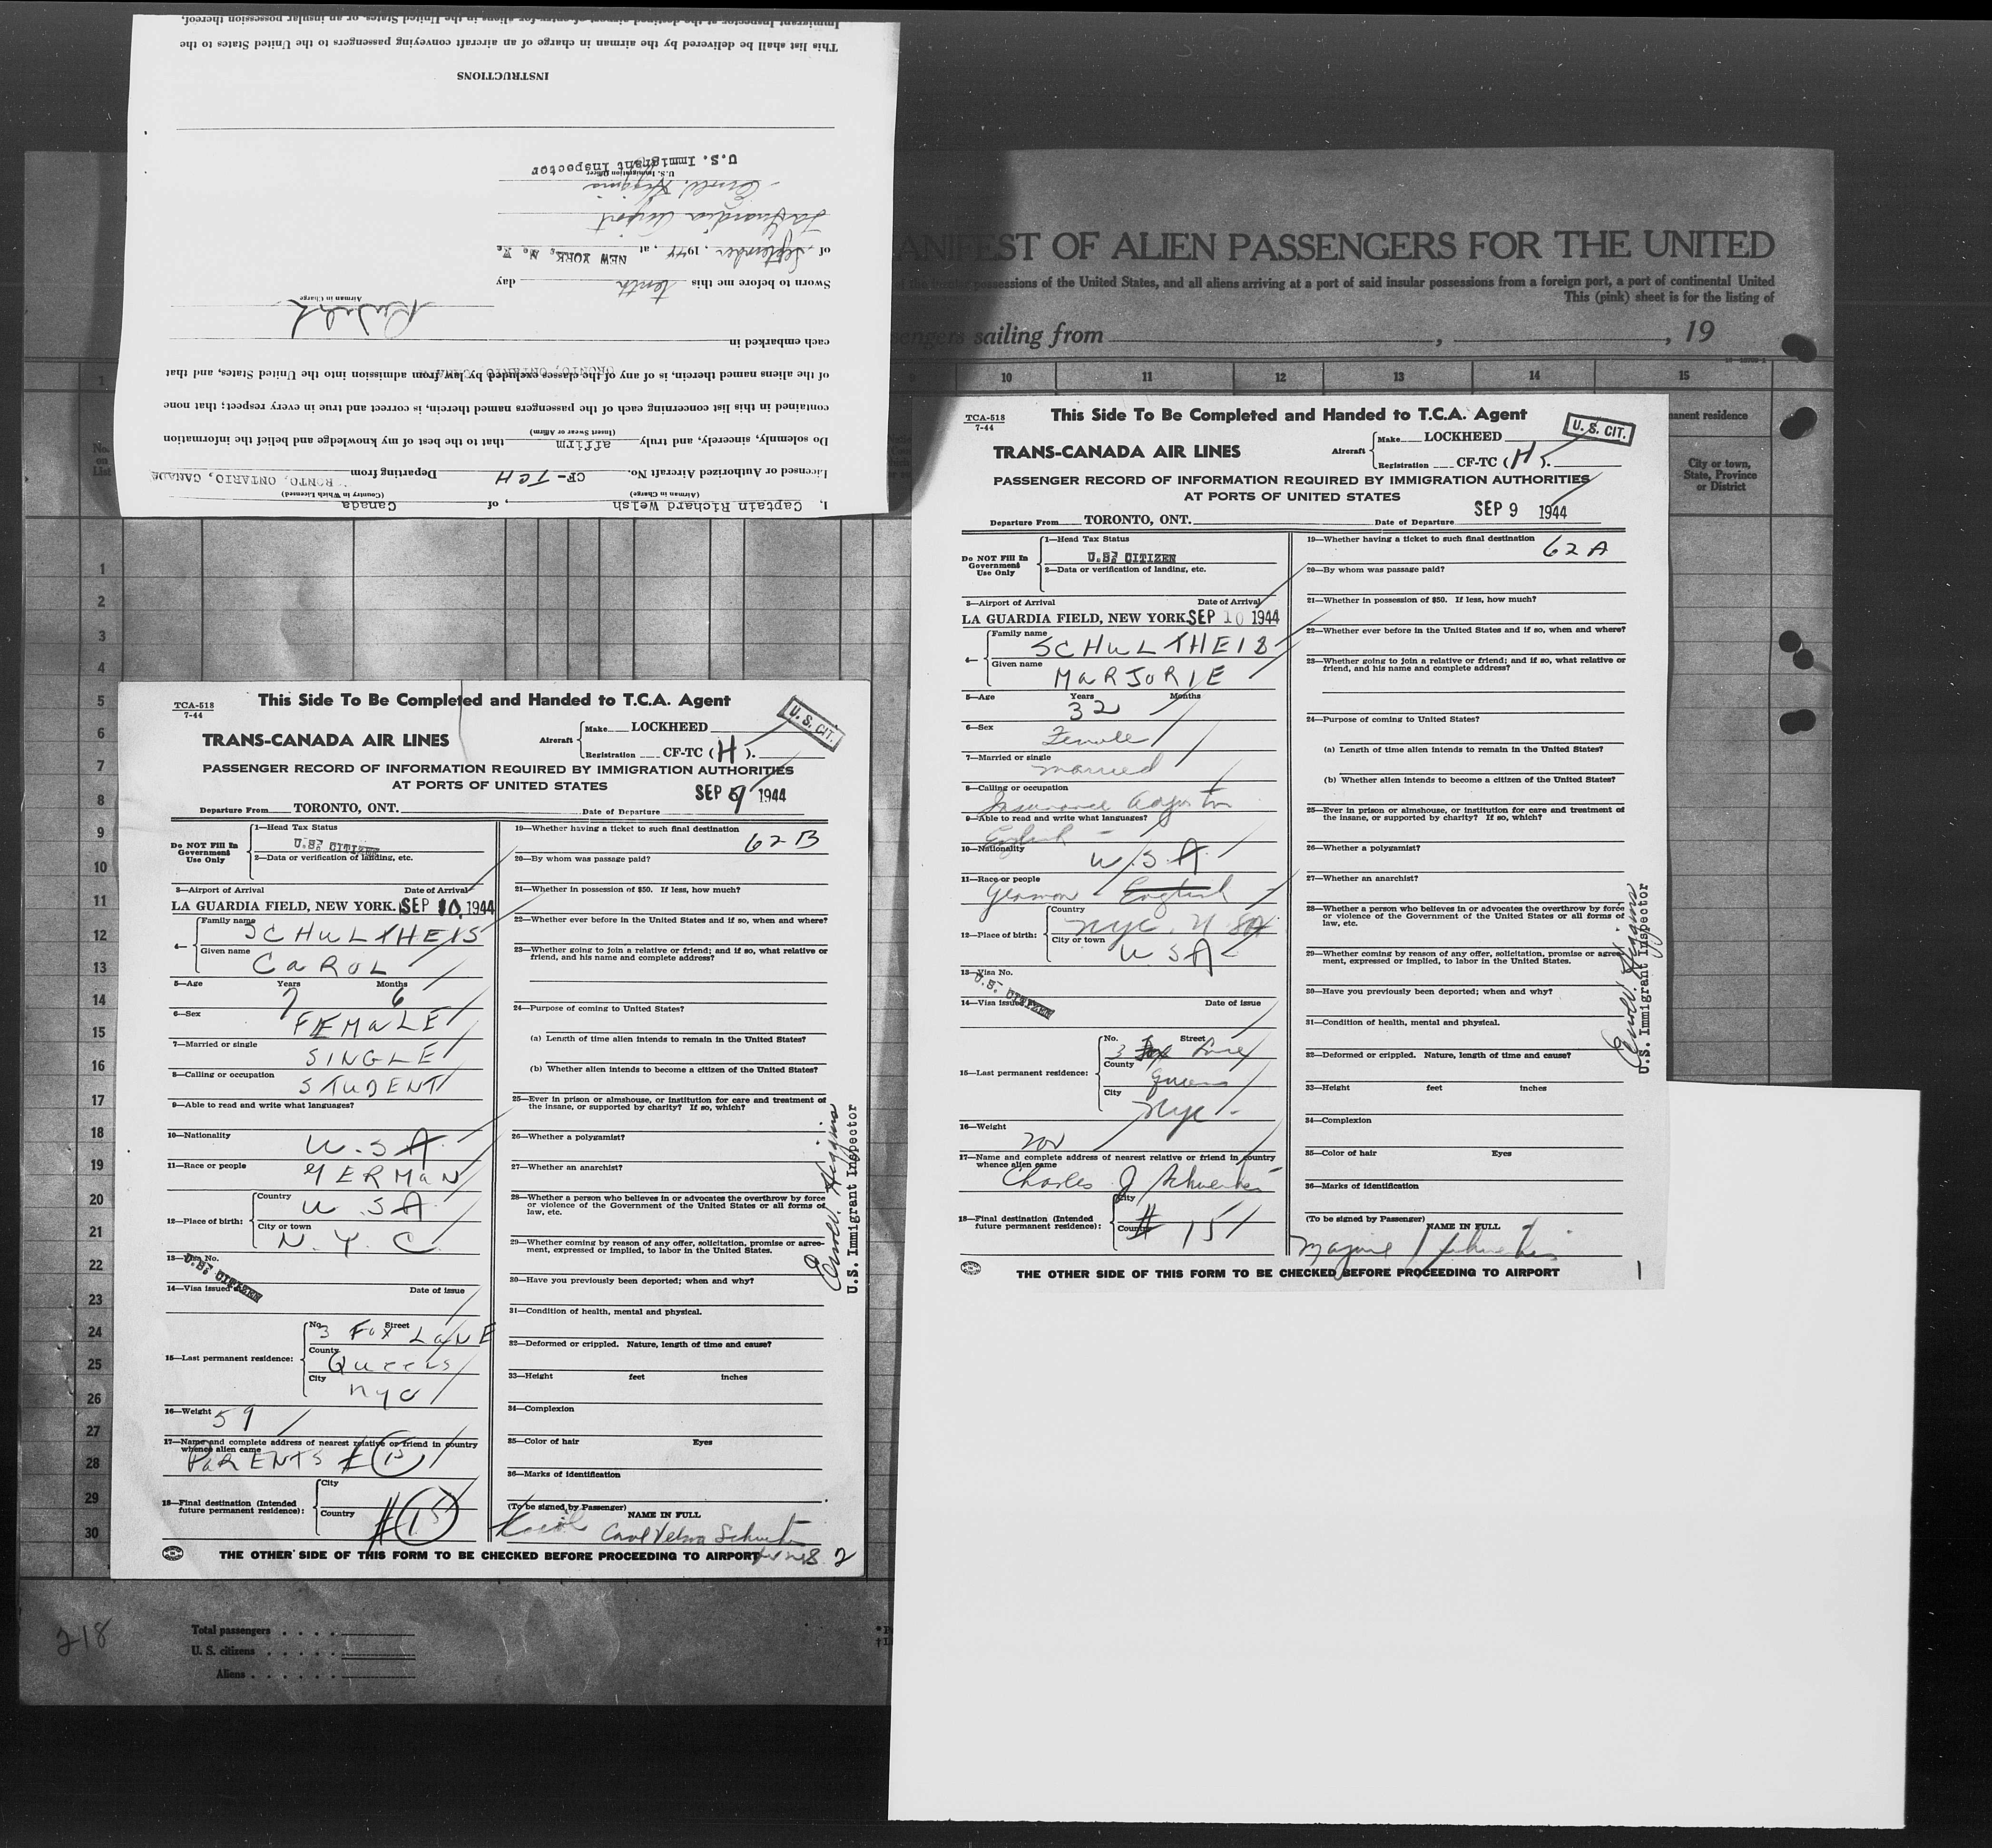 Immigrant Inspector at the designed airport of entry for aliens in the United States, or an insular possession thereof,
This list shall be delivered by the airman in charge of an aircraft conveying passengers to the United States to the
INSTRUCTIONS
U.S. Immigrant Inspector
U.S. Immigration Officer
LaGuardia Airport
of September, 1944, at NEW YORK, N. Y.
Sworn to before me this tenth day
Airman in Charge
each embarked in
TORONTO, ONTARIO, CANADA
of the aliens named therein, is of any of the classes excluded by law from admission into the United States, and that
contained in this list concerning each of the passengers named therein, is correct and true in every respect; that none
(Insert Swear or Affirm)
Do solemnly, sincerely, and truly affirm that to the best of my knowledge and belief the information
Licensed or Authorized Aircraft No. CF-TCH Departing from TORONTO, ONTARIO, CANADA
(Airman in Charge) (Country in Which Licensed)
I, Captain Richard Welsh, of Canada
MANIFEST OF ALIEN PASSENGERS FOR THE UNITED
possessions of the United States, and all aliens arriving at a port of said insular possessions from a foreign port, a port of continental United
This (pink) sheet is for the listing of
sengers sailing from , , 19
1 9 10 11 12 13 14 15
No. on List
manent residence
City or town, State, Province or District
1
2
3
4
5
6
7
8
9
10
11
12
13
14
15
16
17
18
19
20
21
22
23
24
25
26
27
28
29
30
TCA-518
7-44
This Side To Be Completed and Handed to T.C.A. Agent
U. S. CIT.
TRANS-CANADA AIR LINES
Aircraft
Make LOCKHEED
Registration CF-TC (H).
PASSENGER RECORD OF INFORMATION REQUIRED BY IMMIGRATION AUTHORITIES
AT PORTS OF UNITED STATES
SEP 9 1944
Departure From TORONTO, ONT. Date of Departure
Do NOT Fill In Government Use Only
1—Head Tax Status
U.S. CITIZEN
2—Data or verification of landing, etc.
3—Airport of Arrival Date of Arrival
LA GUARDIA FIELD, NEW YORK. SEP 10, 1944
4—
Family name SCHULTHEIS
Given name CAROL
5—Age Years 7 Months 6
6—Sex FEMALE
7—Married or single SINGLE
8—Calling or occupation STUDENT
9—Able to read and write what languages?
10—Nationality U.S.A.
11—Race or people GERMAN
12—Place of birth:
Country U.S.A.
City or town N.Y.C.
13—Visa No.
U.S. CITIZEN
14—Visa issued Date of issue
15—Last permanent residence:
No. Street 3 FOX LANE
County Queens
City NYC
16—Weight 59
17—Name and complete address of nearest relative or friend in country whence alien came
PARENTS # 15
18—Final destination (Intended future permanent residence):
City
Country # 15
19—Whether having a ticket to such final destination
62 B
20—By whom was passage paid?
21—Whether in possession of $50. If less, how much?
22—Whether ever before in the United States and if so, when and where?
23—Whether going to join a relative or friend; and if so, what relative or friend, and his name and complete address?
24—Purpose of coming to United States?
(a) Length of time alien intends to remain in the United States?
(b) Whether alien intends to become a citizen of the United States?
25—Ever in prison or almshouse, or institution for care and treatment of the insane, or supported by charity? If so, which?
26—Whether a polygamist?
27—Whether an anarchist?
28—Whether a person who believes in or advocates the overthrow by force or violence of the Government of the United States or all forms of law, etc.
29—Whether coming by reason of any offer, solicitation, promise or agreement, expressed or implied, to labor in the United States.
30—Have you previously been deported; when and why?
31—Condition of health, mental and physical.
32—Deformed or crippled. Nature, length of time and cause?
33—Height feet inches
34—Complexion
35—Color of hair Eyes
36—Marks of identification
(To be signed by Passenger) NAME IN FULL
Carol Velma
THE OTHER SIDE OF THIS FORM TO BE CHECKED BEFORE PROCEEDING TO AIRPORT
2
U.S. Immigrant Inspector
TCA-518
7-44
This Side To Be Completed and Handed to T.C.A. Agent
U. S. CIT.
TRANS-CANADA AIR LINES
Aircraft
Make LOCKHEED
Registration CF-TC (H).
PASSENGER RECORD OF INFORMATION REQUIRED BY IMMIGRATION AUTHORITIES
AT PORTS OF UNITED STATES
SEP 9 1944
Departure From TORONTO, ONT. Date of Departure
Do NOT Fill In Government Use Only
1—Head Tax Status
U.S. CITIZEN
2—Data or verification of landing, etc.
3—Airport of Arrival Date of Arrival
LA GUARDIA FIELD, NEW YORK. SEP 10 1944
4—
Family name SCHULTHEIS
Given name MARJORIE
5—Age Years 32 Months
6—Sex Female
7—Married or single married
8—Calling or occupation Insurance Adjustor
9—Able to read and write what languages?
English
10—Nationality U.S.A.
11—Race or people German English
12—Place of birth:
Country NYC. USA
City or town USA
13—Visa No.
U.S. CITIZEN
14—Visa issued Date of issue
15—Last permanent residence:
No. Street 3 Fox Lane
County Queens
City NYC
16—Weight
17—Name and complete address of nearest relative or friend in country whence alien came
Charles J
18—Final destination (Intended future permanent residence):
City
Country # 15
19—Whether having a ticket to such final destination
62 A
20—By whom was passage paid?
21—Whether in possession of $50. If less, how much?
22—Whether ever before in the United States and if so, when and where?
23—Whether going to join a relative or friend; and if so, what relative or friend, and his name and complete address?
24—Purpose of coming to United States?
(a) Length of time alien intends to remain in the United States?
(b) Whether alien intends to become a citizen of the United States?
25—Ever in prison or almshouse, or institution for care and treatment of the insane, or supported by charity? If so, which?
26—Whether a polygamist?
27—Whether an anarchist?
28—Whether a person who believes in or advocates the overthrow by force or violence of the Government of the United States or all forms of law, etc.
29—Whether coming by reason of any offer, solicitation, promise or agreement, expressed or implied, to labor in the United States.
30—Have you previously been deported; when and why?
31—Condition of health, mental and physical.
32—Deformed or crippled. Nature, length of time and cause?
33—Height feet inches
34—Complexion
35—Color of hair Eyes
36—Marks of identification
(To be signed by Passenger) NAME IN FULL
THE OTHER SIDE OF THIS FORM TO BE CHECKED BEFORE PROCEEDING TO AIRPORT
1
U.S. Immigrant Inspector
218
Total passengers
U. S. citizens
Aliens